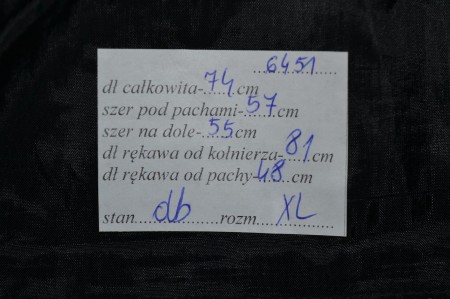 6451
dł całkowita-74cm
szer pod pachami-57cm
szer na dole-55cm
dł rękawa od kołnierza-81cm
dł rękawa od pachy-48cm
stan db rozm XL